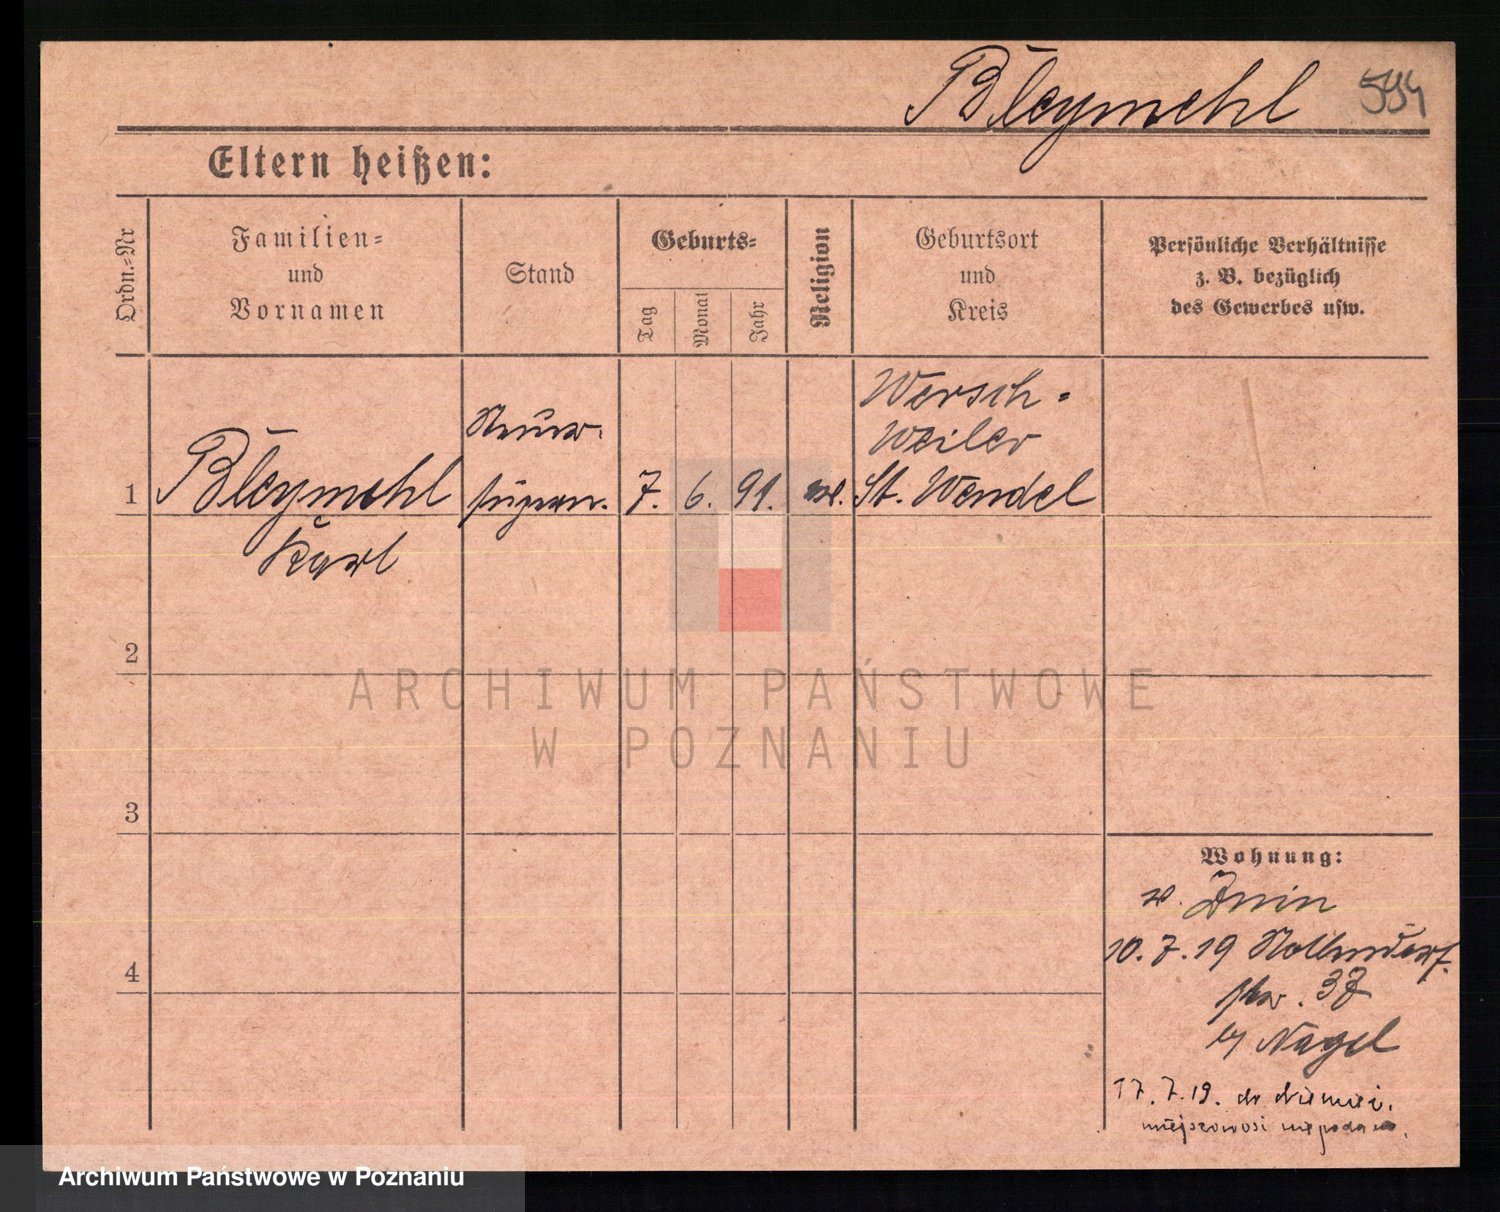 Bleymehl 594
Eltern heißen:
Ordn.=Nr
Familien=
und
Vornamen
Stand
Geburts=
Tag
Monat
Jahr
Religion
Geburtsort
und
Kreis
Persönliche Verhältnisse
z. B. bezüglich
des Gewerbes usw.
1
Bleymehl
Karl
7. 6. 91.
Wersch=
Weiler
St. Wendel
2
3
4
Wohnung:
v. Znin
10.7.19 Nollendorf
str. 37
b/ Nagel
17.7.19. do Niemiec.
miejscowość niepodana.
ARCHIWUM PAŃSTWOWE
W POZNANIU
Archiwum Państwowe w Poznaniu